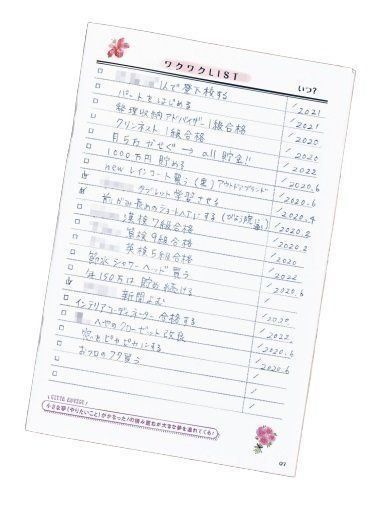 ワクワクLIST
いつ?
人で登下校する / 2021
パートをはじめる / 2021
整理収納アドバイザー1級合格 / 2020
クリンネスト1級合格 / 2020
月5万かせぐ → all 貯金!! / 2022
1000万円貯める / 2020.6
new レインコート買う(黒)アウトドアブランド / 2020.6
タブレット学習させる / 2020.4
前がみ長めのショートヘアにする
漢検7級合格 / 2020.2
算検9級合格 / 2020
英検5級合格 / 2020
節水シャワーヘッド買う / 2022
年150万は貯め続ける / 2020.6
新聞よむ /
インテリアコーディネーター合格する / 2020
へやのクローゼット改良 / 2022.
窓をピカピカにする / 2020.6
おフロのフタ買う / 2020.6
/
/
小さな夢(やりたいこと)がかなった!の積み重ねが大きな夢を連れてくる!